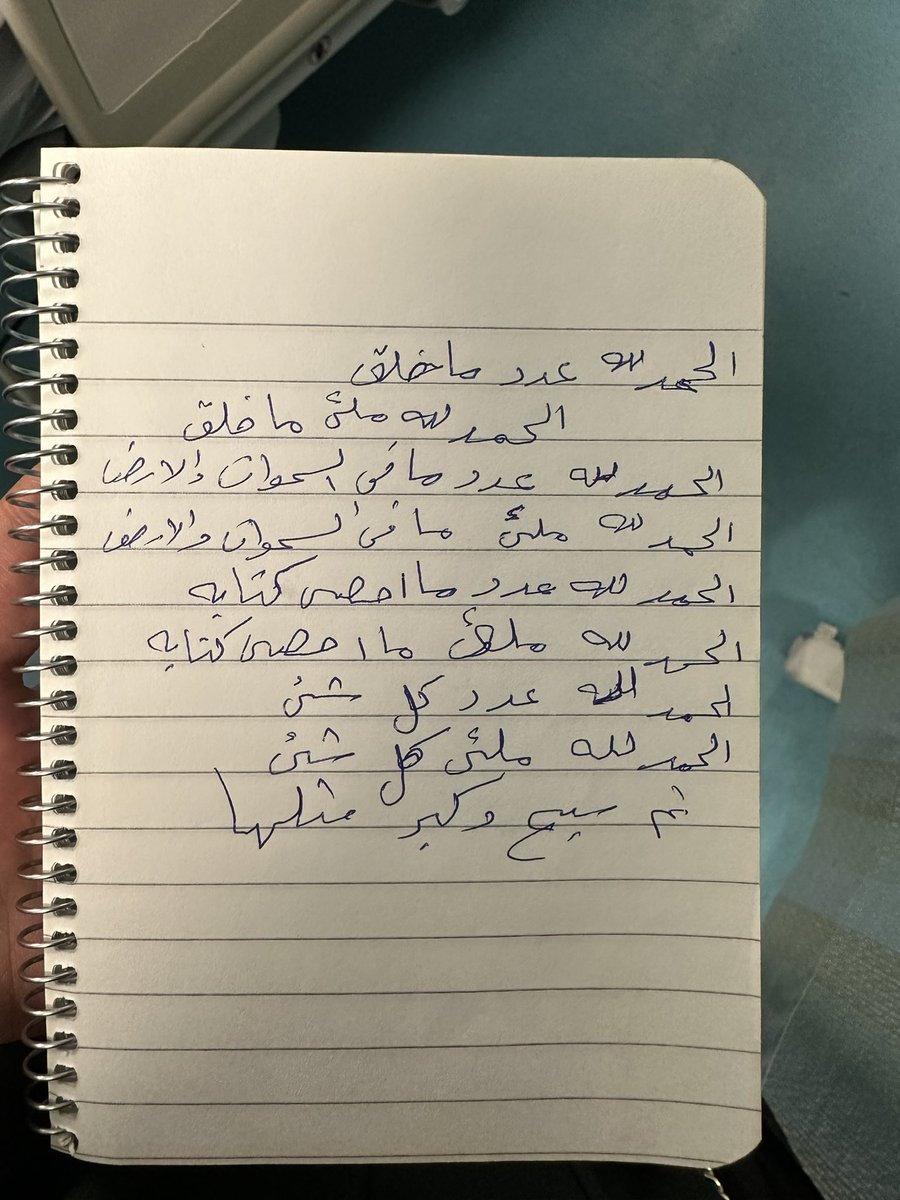 الحمد لله عدد ما خلق
الحمد لله ملئ ما خلق
الحمد لله عدد ما في السموات والارض
الحمد لله ملئ ما في السموات والارض
الحمد لله عدد ما احصى كتابه
الحمد لله ملئ ما احصى كتابه
الحمد لله عدد كل شئ
الحمد لله ملئ كل شئ
ثم سبح وكبر مثلها